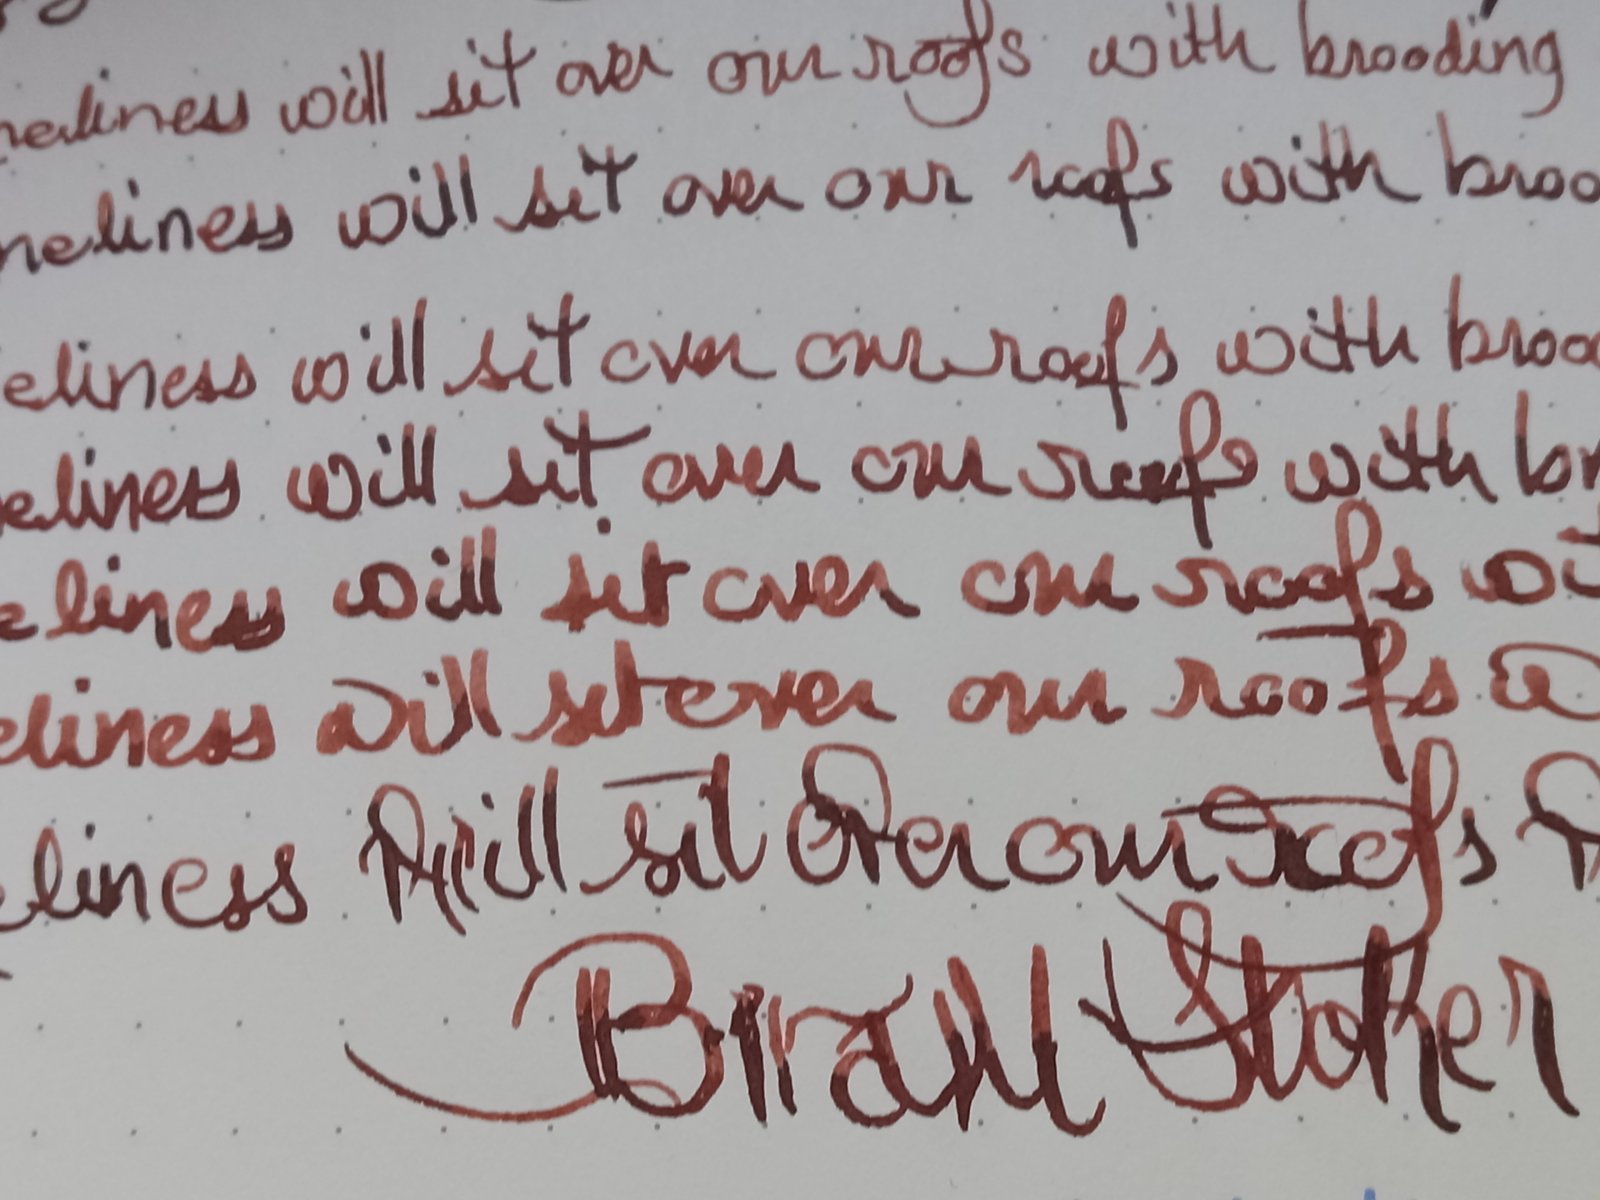 neliness will sit over our roofs with brooding
neliness will sit over our roofs with broo
eliness will sit over our roofs with broo
eliness will sit over our roofs with br
eliness will sit over our roofs wi
eliness will sit over our roofs w
eliness will sit over our roofs
Bram Stoker